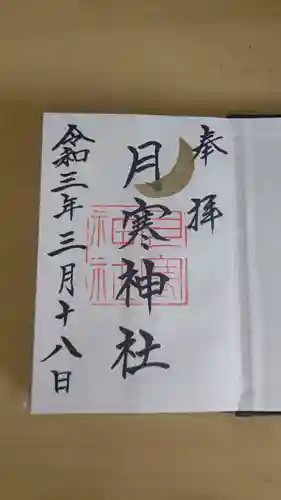 奉拝
月寒神社
月寒神社
令和三年三月十八日